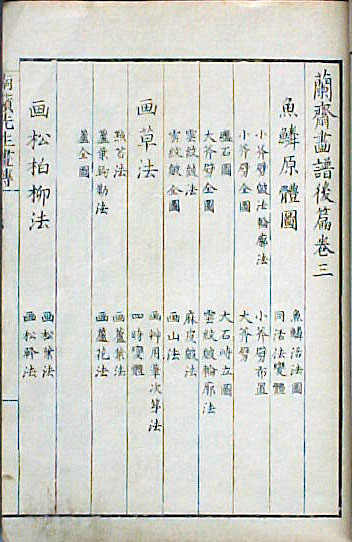 蘭齋畫譜後篇卷三
魚鱗原體圖
魚鱗活法圖
同活法變體
小斧劈皴法輪廓法
小斧劈布置
小斧劈全圖
大斧劈
疊石圖
大石峙立圖
大斧劈全圖
雲紋皴輪廓法
雲紋皴法
麻皮皴法
雲紋皴全圖
画山法
画草法
画艸用筆次第法
四時變體
點苔法
画蘆葉法
蘆葉鈎勒法
画蘆花法
蘆全圖
画松柏柳法
画松葉法
画松幹法
先生畫傳